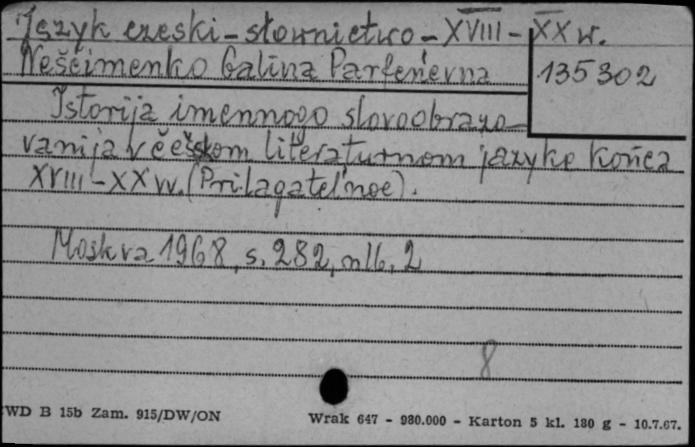 Język czeski - słownictwo - XVIII - XX w.
Neščimenko Galina Parfen'evna
135302
Istorija imennogo slovoobrazo-
vanija v češskom literaturnom jazyke konca
XVIII - XX vv. (Prilagatel'noe).
Moskva 1968, s. 282, nlb. 2
8
WD B 15b Zam. 915/DW/ON
Wrak 647 - 980.000 - Karton 5 kl. 180 g - 10.7.67.